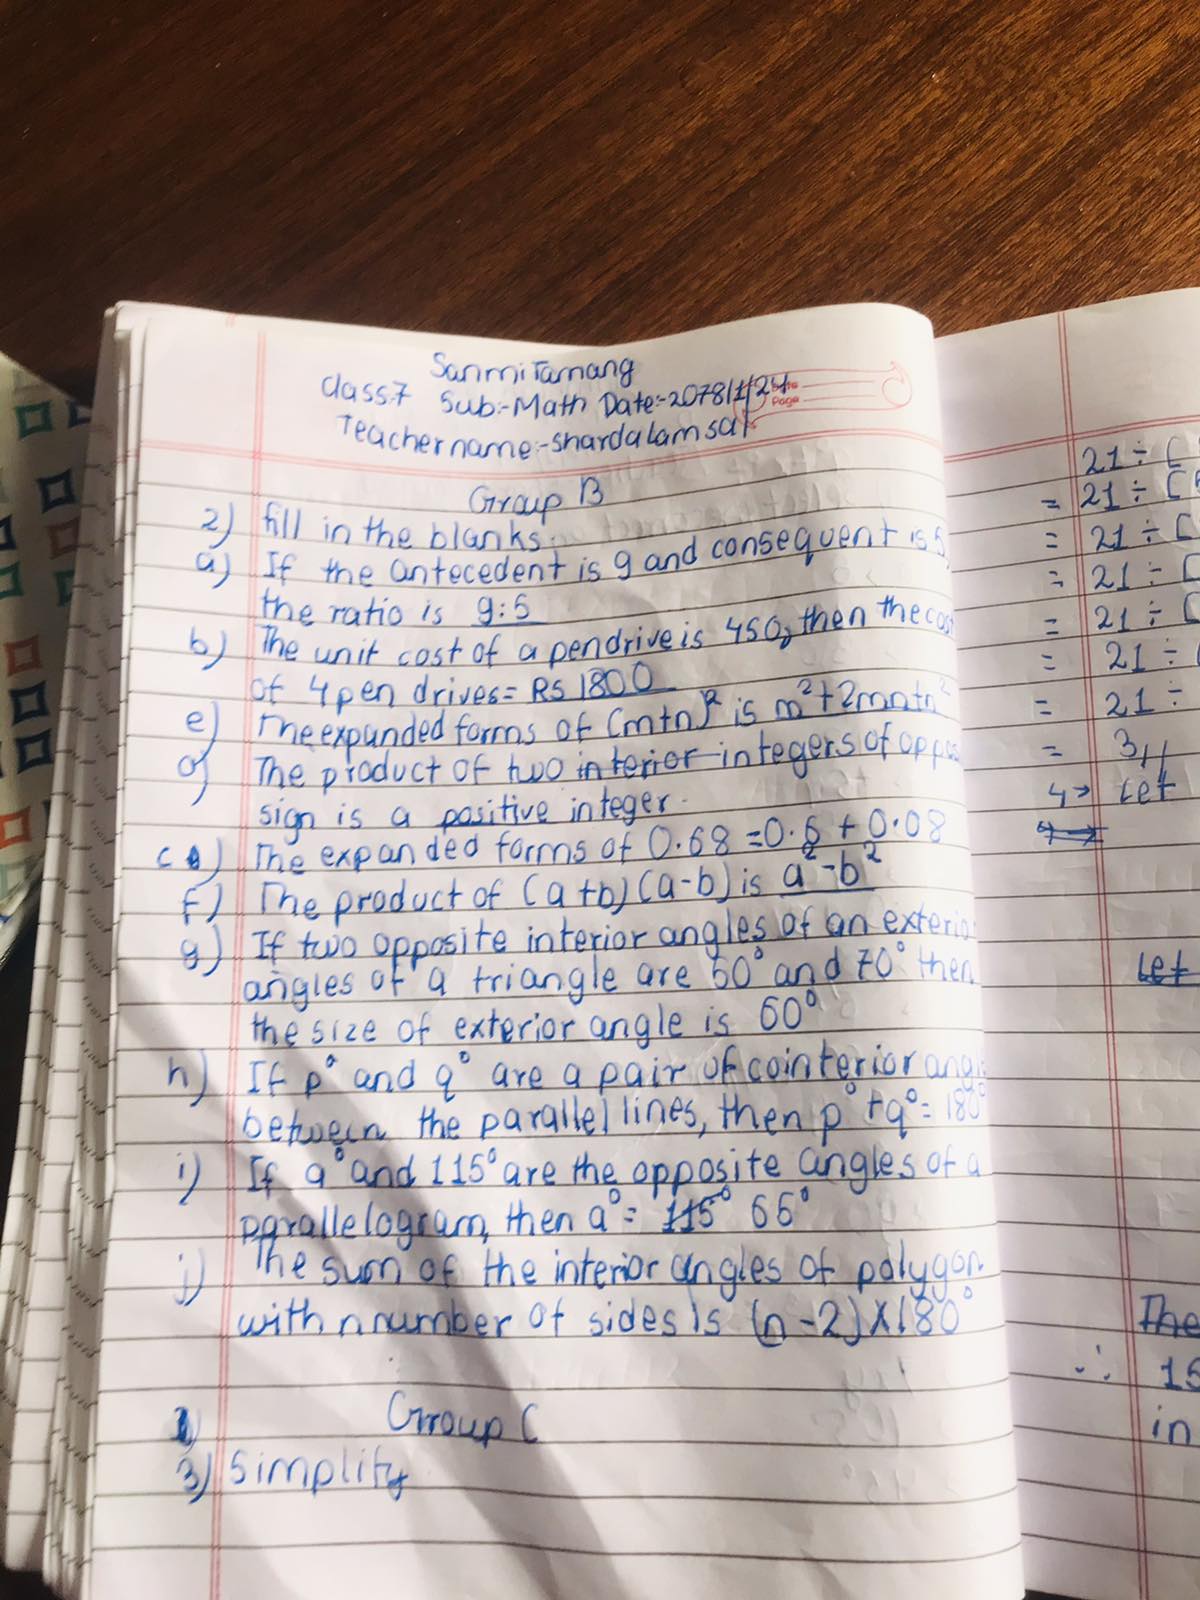 Sanmi Tamang
Class:7 Sub:-Math Date:-2078/1/24
Teacher name:-sharda lamsal
Date
Page
Group B
2) fill in the blanks.
a) If the antecedent is 9 and consequent is 5,
the ratio is 9:5
b) The unit cost of a pendrive is 450, then the cost
of 4 pen drives= RS 1800
e) The expanded forms of (m+n)² is m²+2mn+n²
d) The product of two interior integers of oppos
sign is a positive integer.
c) The expanded forms of 0.68 =0.6 + 0.08
f) The product of (a+b) (a-b) is a²-b²
g) If two opposite interior angles of an exterio
angles of a triangle are 50° and 70° then
the size of exterior angle is 60°
h) If p° and q° are a pair of cointerior angl
between the parallel lines, then p°+q°= 180°
i) If a° and 115° are the opposite angles of a
parallelogram, then a°= 115° 65°
j) The sum of the interior angles of polygon
with n number of sides is (n-2)×180°
Group C
3) Simplify
21 ÷ [
= 21 ÷ [
= 21 ÷ [
= 21 ÷ [
= 21 ÷ [
= 21 ÷
= 21 ÷
= 3//
4→ Let
Let
The
∴ 15
in